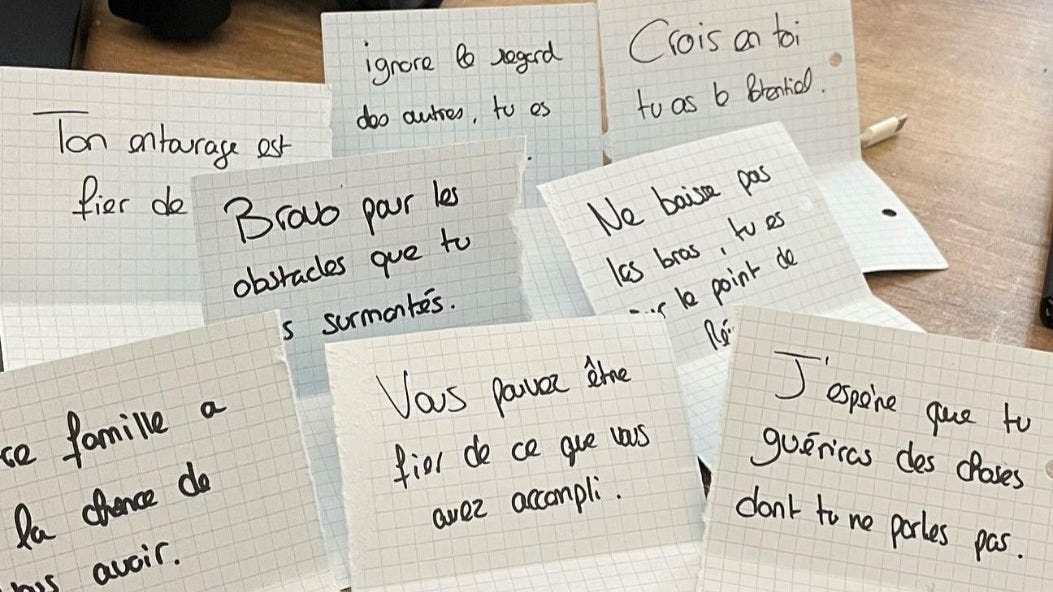 ignore le regard
des autres, tu es
Crois en toi
tu as le Potentiel.
Ton entourage est
fier de
Bravo pour les
obstacles que tu
s surmontés.
Ne baisse pas
les bras, tu es
le point de
Ré
famille a
la chance de
avoir.
Vous pouvez être
fier de ce que vous
avez accompli.
J'espère que tu
guériras des choses
dont tu ne parles pas.